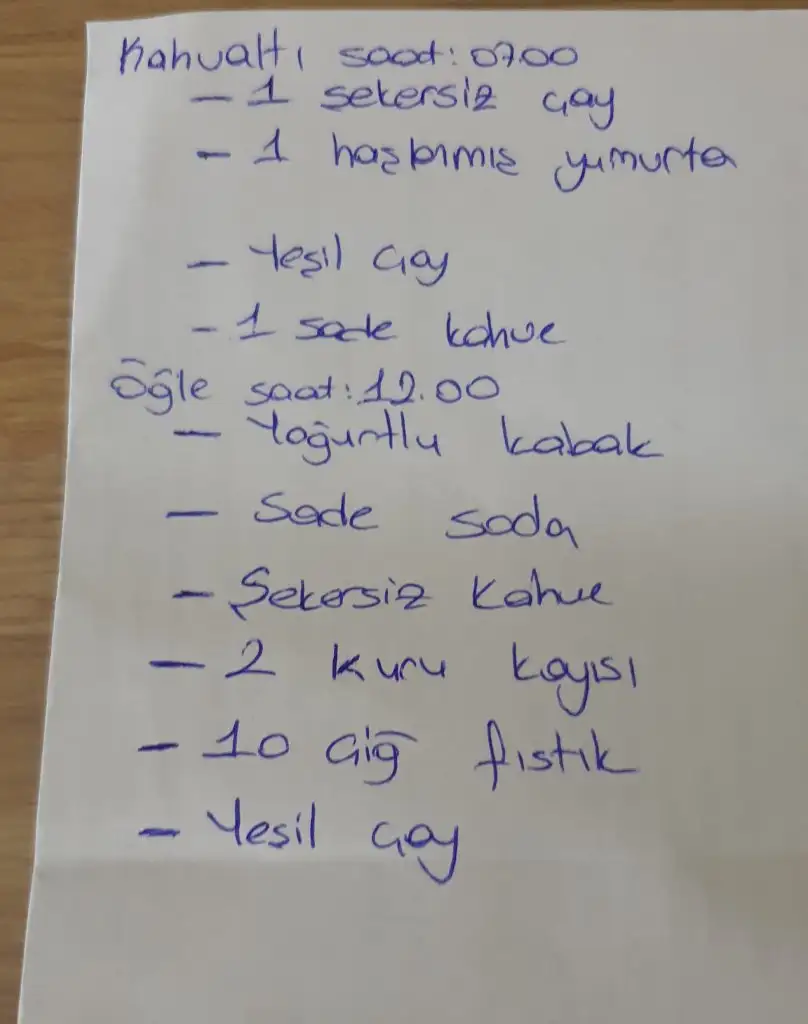 Kahvaltı saat: 07.00
- 1 şekersiz çay
- 1 haşlanmış yumurta
- Yeşil çay
- 1 sade kahve
Öğle saat: 12.00
- Yoğurtlu kabak
- Sade soda
- Şekersiz kahve
- 2 kuru kayısı
- 10 çiğ fıstık
- Yeşil çay